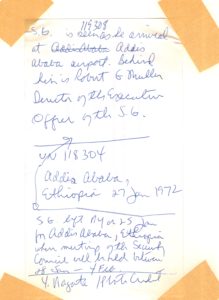 119308
S.G. is seen as he arrived
at Addis Ababa Addis
Ababa airport. Behind
him is Robert G Muller
Director of the Executive
Office of the S.G.
UN 118304
Addis Ababa,
Ethiopia 27 Jan 1972
S G left NY on 25 Jan
for Addis Ababa, Ethiopia
where meeting of the Security
Council will be held between
28 Jan - 4 Feb
Y. Nagata